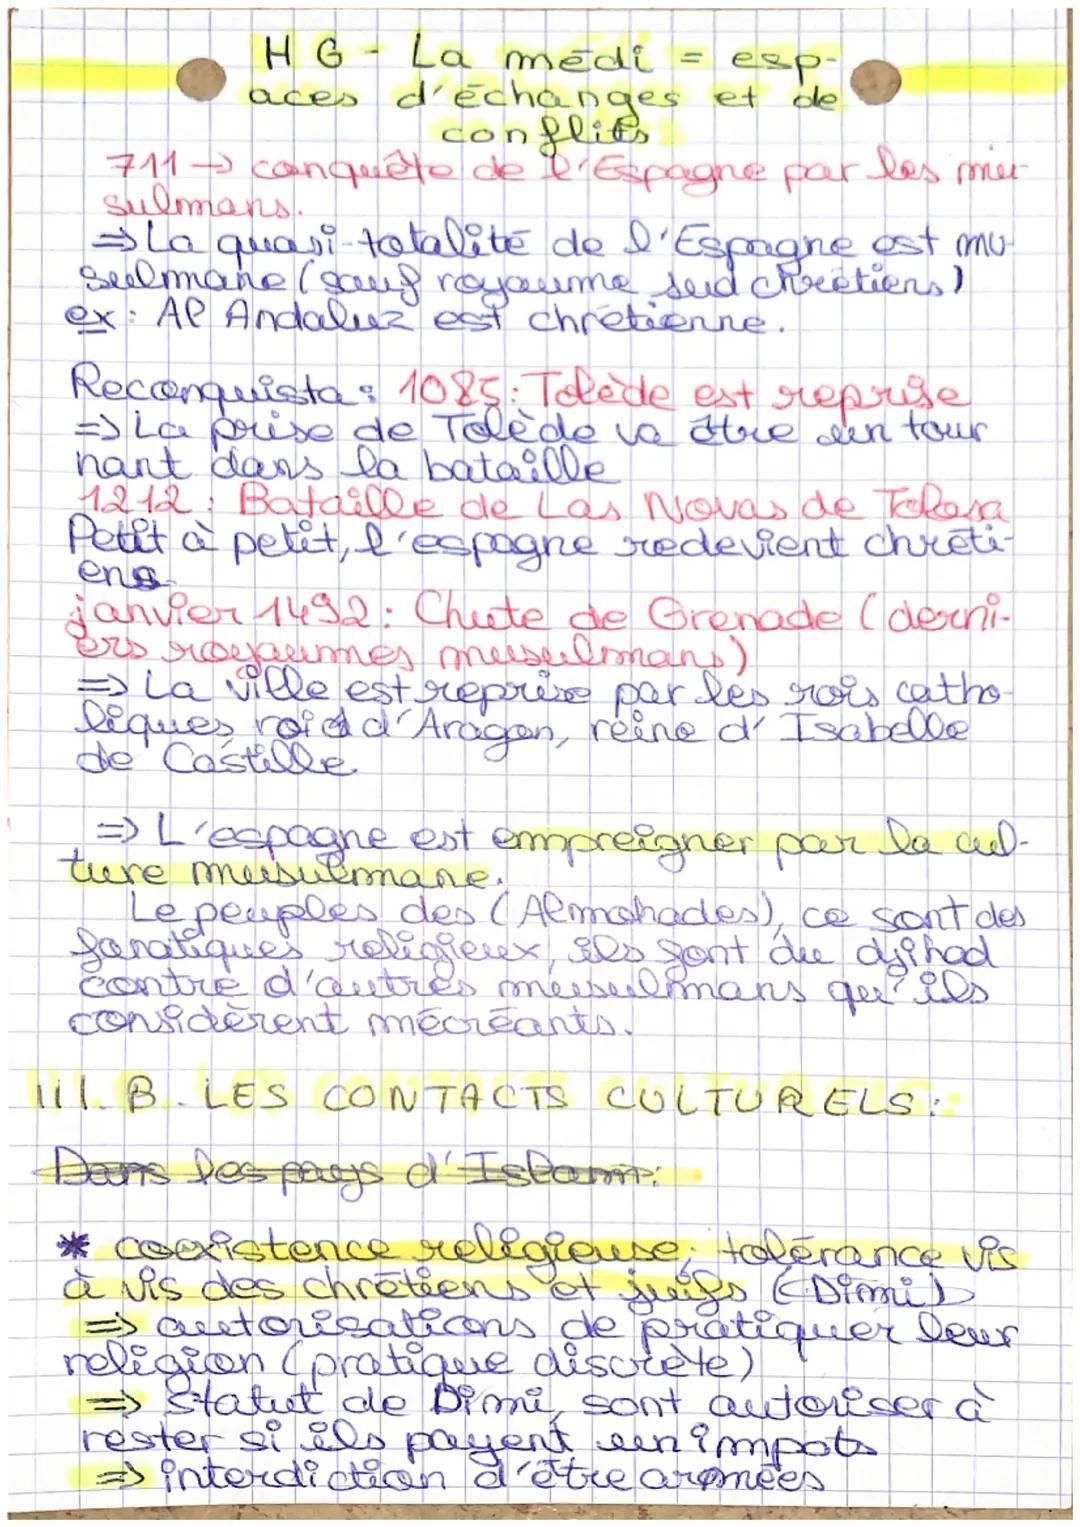 HG - La médi = esp-
aces d'échanges et de
conflits
711 → conquête de l'Espagne par les mu-
sulmans.
⇒ La quasi-totalité de l'Espagne est mu-
sulmane (sauf royaume sud chrétiens)
ex: Al Andaluz est chrétienne.
Reconquista: 1085: Tolède est reprise
⇒ La prise de Tolède va être un tour
nant dans la bataille
1212: Bataille de Las Novas de Tolosa
Petit à petit, l'espagne redevient chréti-
enne
janvier 1492: Chute de Grenade (derni-
ers royaumes musulmans)
⇒ La ville est reprise par les rois catho-
liques roi d'Aragon, reine d'Isabelle
de Castille
⇒ L'espagne est empreigner par la cul-
ture musulmane.
Le peuples des (Almohades), ce sont des
fanatiques religieux, ils sont du djihad
contre d'autres musulmans qu'ils
considèrent mécréants.
III. B. LES CONTACTS CULTURELS:
Dans les pays d'Islam:
* coexistence religieuse; tolérance vis
à vis des chrétiens et juifs (Dimi)
⇒ autorisations de pratiquer leur
religion (pratique discrète)
⇒ Statut de Dimi, sont autoriser à
rester si ils payent un impots
⇒ interdiction d'être armées